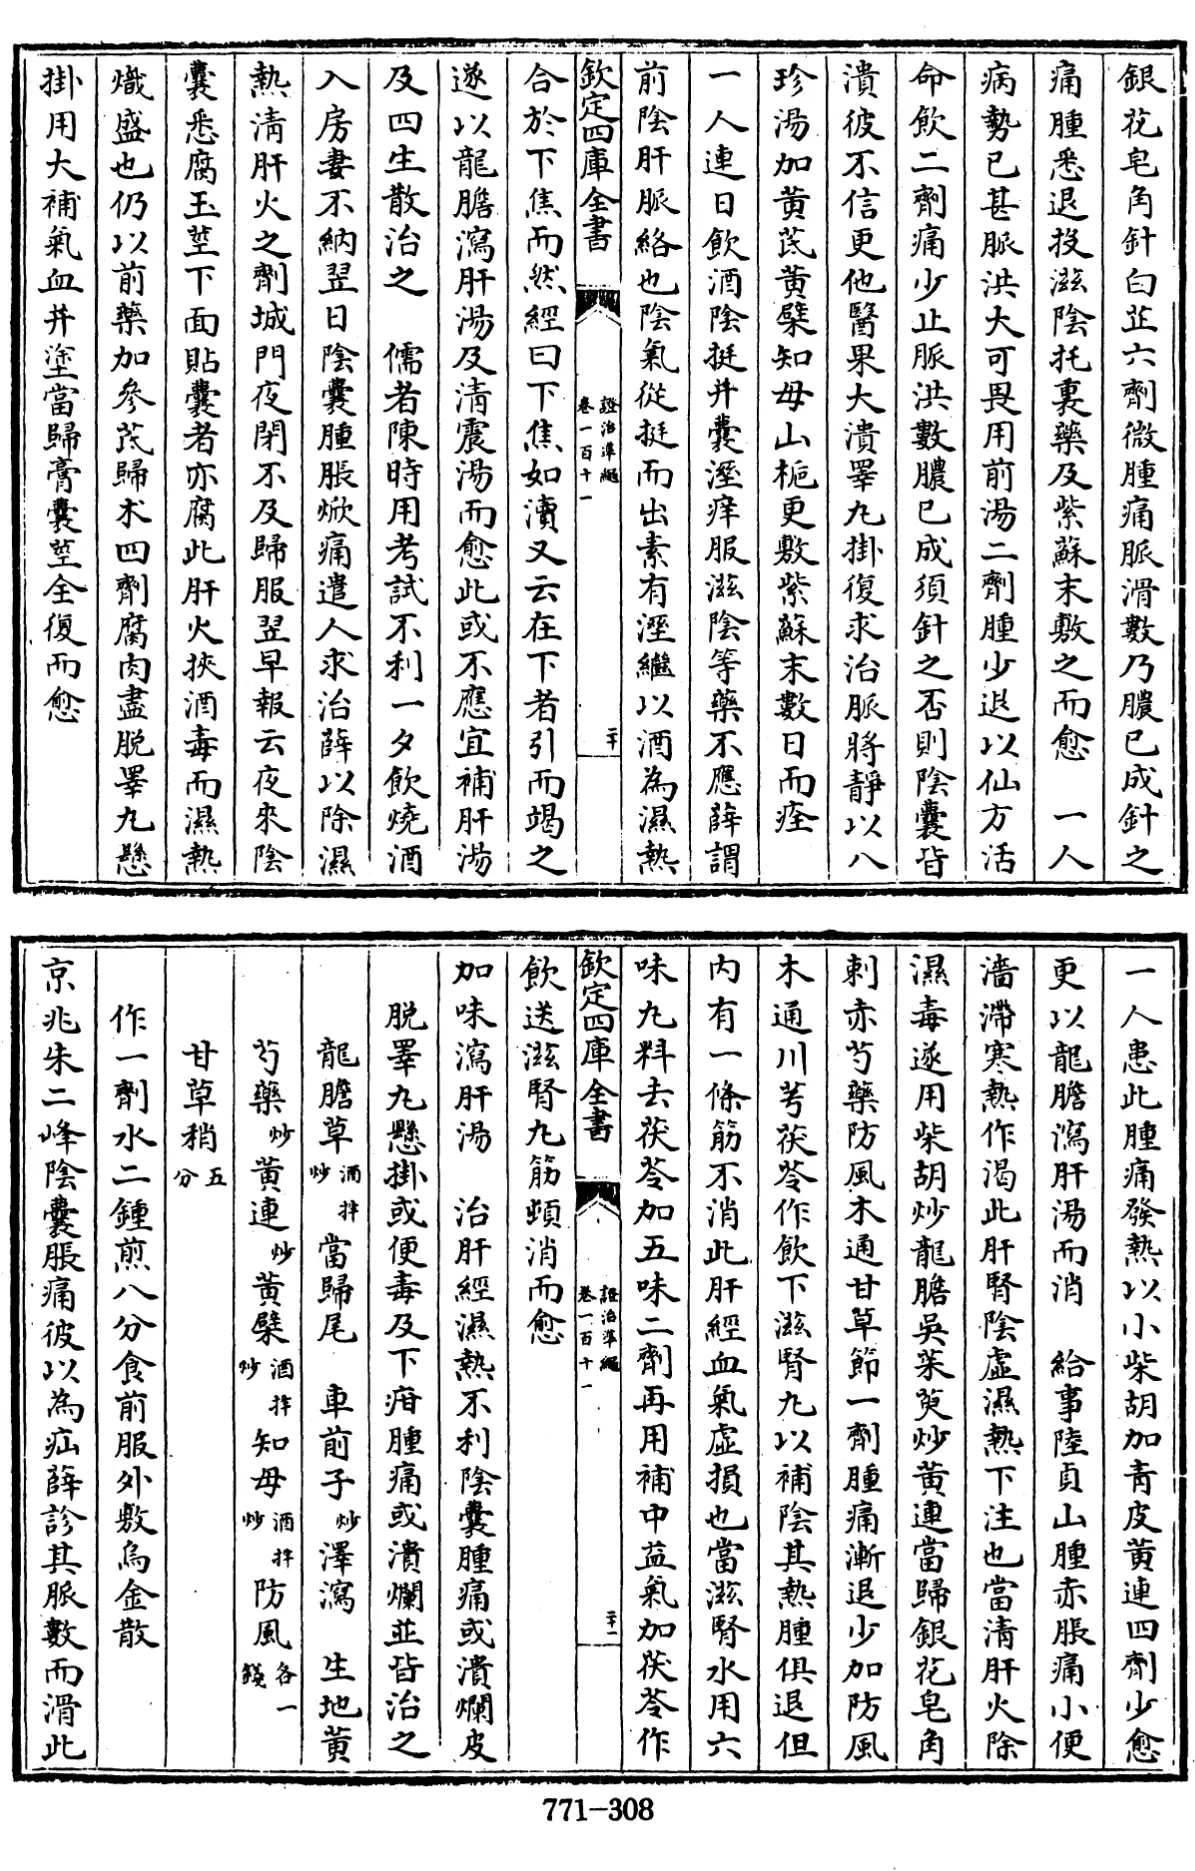 銀花皂角針白芷六劑微腫痛脈滑數乃膿已成針之
痛腫悉退投滋陰托裏藥及紫蘇末敷之而愈　一人
病勢已甚脈洪大可畏用前湯二劑腫少退以仙方活
命飲二劑痛少止脈洪數膿已成須針之否則陰囊皆
潰彼不信更他醫果大潰睪丸掛復求治脈將靜以八
珍湯加黃芪黃檗知母山梔更敷紫蘇末數日而痊
一人連日飲酒陰挺并囊溼痒服滋陰等藥不應薛謂
前陰肝脈絡也陰氣從挺而出素有溼繼以酒為濕熱
欽定四庫全書
證治準繩
卷一百十一
二十
合於下焦而然經曰下焦如瀆又云在下者引而竭之
遂以龍膽瀉肝湯及清震湯而愈此或不應宜補肝湯
及四生散治之　儒者陳時用考試不利一夕飲燒酒
入房妻不納翌日陰囊腫脹焮痛遣人求治薛以除濕
熱清肝火之劑城門夜閉不及歸服翌早報云夜來陰
囊悉腐玉莖下面貼囊者亦腐此肝火挾酒毒而濕熱
熾盛也仍以前藥加參芪歸朮四劑腐肉盡脫睪丸懸
掛用大補氣血并塗當歸膏囊莖全復而愈
一人患此腫痛發熱以小柴胡加青皮黃連四劑少愈
更以龍膽瀉肝湯而消　給事陸貞山腫赤脹痛小便
濇滯寒熱作渴此肝腎陰虛濕熱下注也當清肝火除
濕毒遂用柴胡炒龍膽吳茱萸炒黃連當歸銀花皂角
刺赤芍藥防風木通甘草節一劑腫痛漸退少加防風
木通川芎茯苓作飲下滋腎丸以補陰其熱腫俱退但
內有一條筋不消此肝經血氣虛損也當滋腎水用六
味丸料去茯苓加五味二劑再用補中益氣加茯苓作
欽定四庫全書
證治準繩
卷一百十一
二十一
飲送滋腎丸筋頓消而愈
加味瀉肝湯　治肝經濕熱不利陰囊腫痛或潰爛皮
脫睪丸懸掛或便毒及下疳腫痛或潰爛並皆治之
龍膽草酒拌炒　當歸尾　車前子炒　澤瀉　生地黃
芍藥炒　黃連炒　黃檗酒拌炒　知母酒拌炒　防風各一錢
甘草稍五分
作一劑水二鍾煎八分食前服外敷烏金散
京兆朱二峰陰囊脹痛彼以為疝薛診其脈數而滑此
771-308